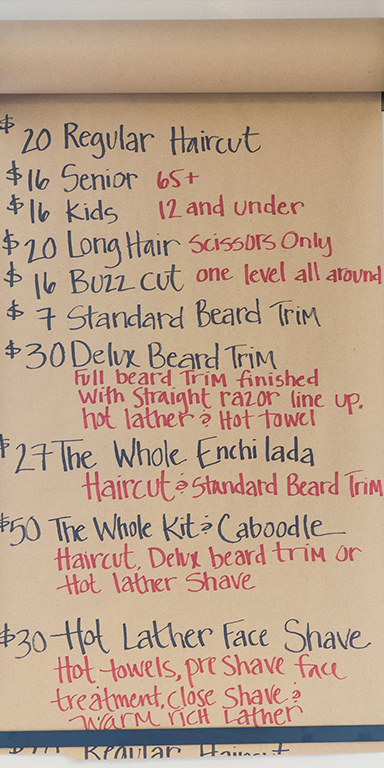 $20 Regular Haircut
$16 Senior 65+
$16 Kids 12 and under
$20 Long Hair Scissors Only
$16 Buzz cut one level all around
$7 Standard Beard Trim
$30 Delux Beard Trim
Full beard Trim finished
with Straight razor line up.
hot lather & Hot towel
$27 The Whole Enchilada
Haircut & Standard Beard Trim
$50 The Whole Kit & Caboodle
Haircut, Delux beard trim or
Hot lather Shave
$30 Hot Lather Face Shave
Hot towels, pre Shave face
treatment, close Shave &
warm rich Lather
Regular Haircut